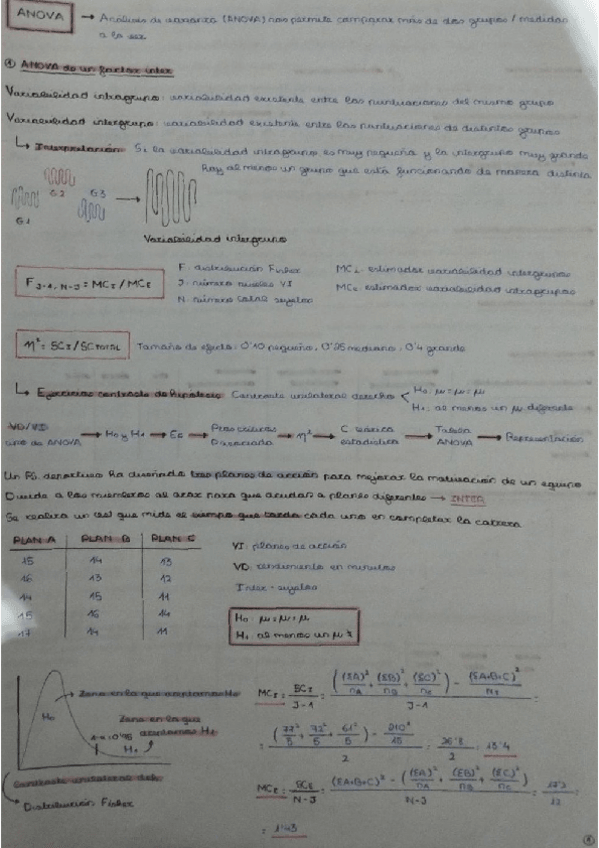 ANOVA → Análisis de varianza (ANOVA) nos permite comparar más de dos grupos / medidas
a la vez
① ANOVA de un factor inter
Variabilidad intragrupo: variabilidad existente entre las puntuaciones del mismo grupo
Variabilidad intergrupo: variabilidad existente entre las puntuaciones de distintos grupos
↳ Interpretación: Si la variabilidad intragrupo es muy pequeña y la intergrupo muy grande
hay al menos un grupo que está funcionando de manera distinta
G1 G2 G3 →
Variabilidad intergrupo
F J-1, N-J = MC I / MC E
F: distribución Fisher
J: número niveles VI
N: número total sujetos
MC I: estimador variabilidad intergrupos
MC E: estimador variabilidad intragrupos
η² = SC I / SC TOTAL Tamaño de efecto: 0'10 pequeño, 0'25 mediano, 0'4 grande
↳ Ejercicios contraste de hipótesis Contraste unilateral derecho
H0: μ = μ = μ
H1: al menos un μ diferente
VD/VI
tipo de ANOVA → H0 y H1 → Ee → → η² → C. teórica
estadístico → Tabla
ANOVA → Representación
Un Ps. deportivo ha diseñado tres planes de acción para mejorar la motivación de un equipo
Divide a los miembros al azar para que acudan a planes diferentes → INTER
Se realiza un test que mide el tiempo que tarda cada uno en completar la carrera
PLAN A PLAN B PLAN C
15 14 13
16 13 12
14 15 11
15 16 14
17 14 11
VI: planes de acción
VD: rendimiento en minutos
Inter-sujetos
H0: μ = μ = μ
H1: al menos un μ ≠
H0
Zona en la que aceptamos H0
Zona en la que
aceptamos H1
H1
Contraste unilateral dch.
Distribución Fisher
MC I = SC I / J-1 = (((ΣA)²/nA + (ΣB)²/nB + (ΣC)²/nC) - (ΣA+B+C)²/nT) / J-1 =
= ((77²/5 + 72²/5 + 61²/5) - 210²/15) / 2 = 26'8 / 2 = 13'4
MC E = SC E / N-J = ((ΣA+B+C)² - ((ΣA)²/nA + (ΣB)²/nB + (ΣC)²/nC)) / N-J = 17'2 / 12
= 1'43